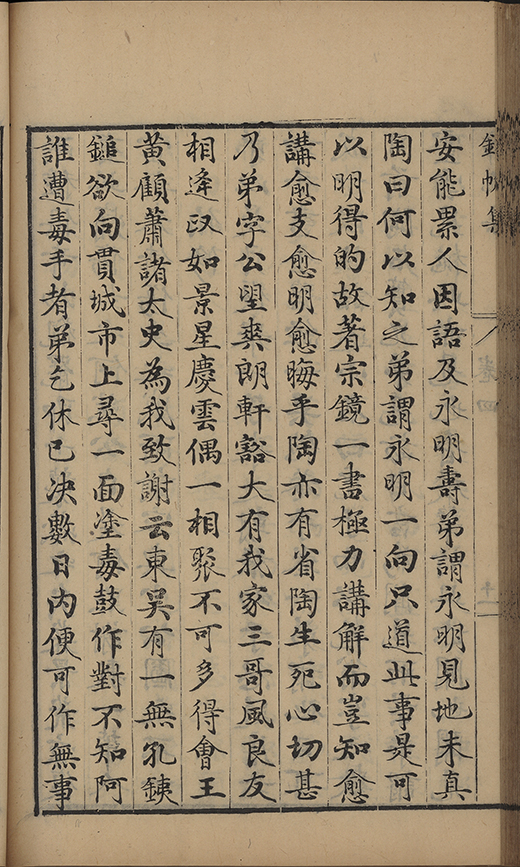 錦帆集
卷四
十一
安能累人因語及永明壽弟謂永明見地未真
陶曰何以知之弟謂永明一向只道此事是可
以明得的故著宗鏡一書極力講解而豈知愈
講愈支愈明愈晦乎陶亦有省陶生死心切甚
乃弟字公望爽朗軒豁大有我家三哥風良友
相逢政如景星慶雲偶一相聚不可多得會王
黄顧蕭諸太史為我致謝云東吳有一無孔鉄
鎚欲向貫城市上尋一面塗毒鼓作對不知阿
誰遭毒手者弟乞休已决數日内便可作無事